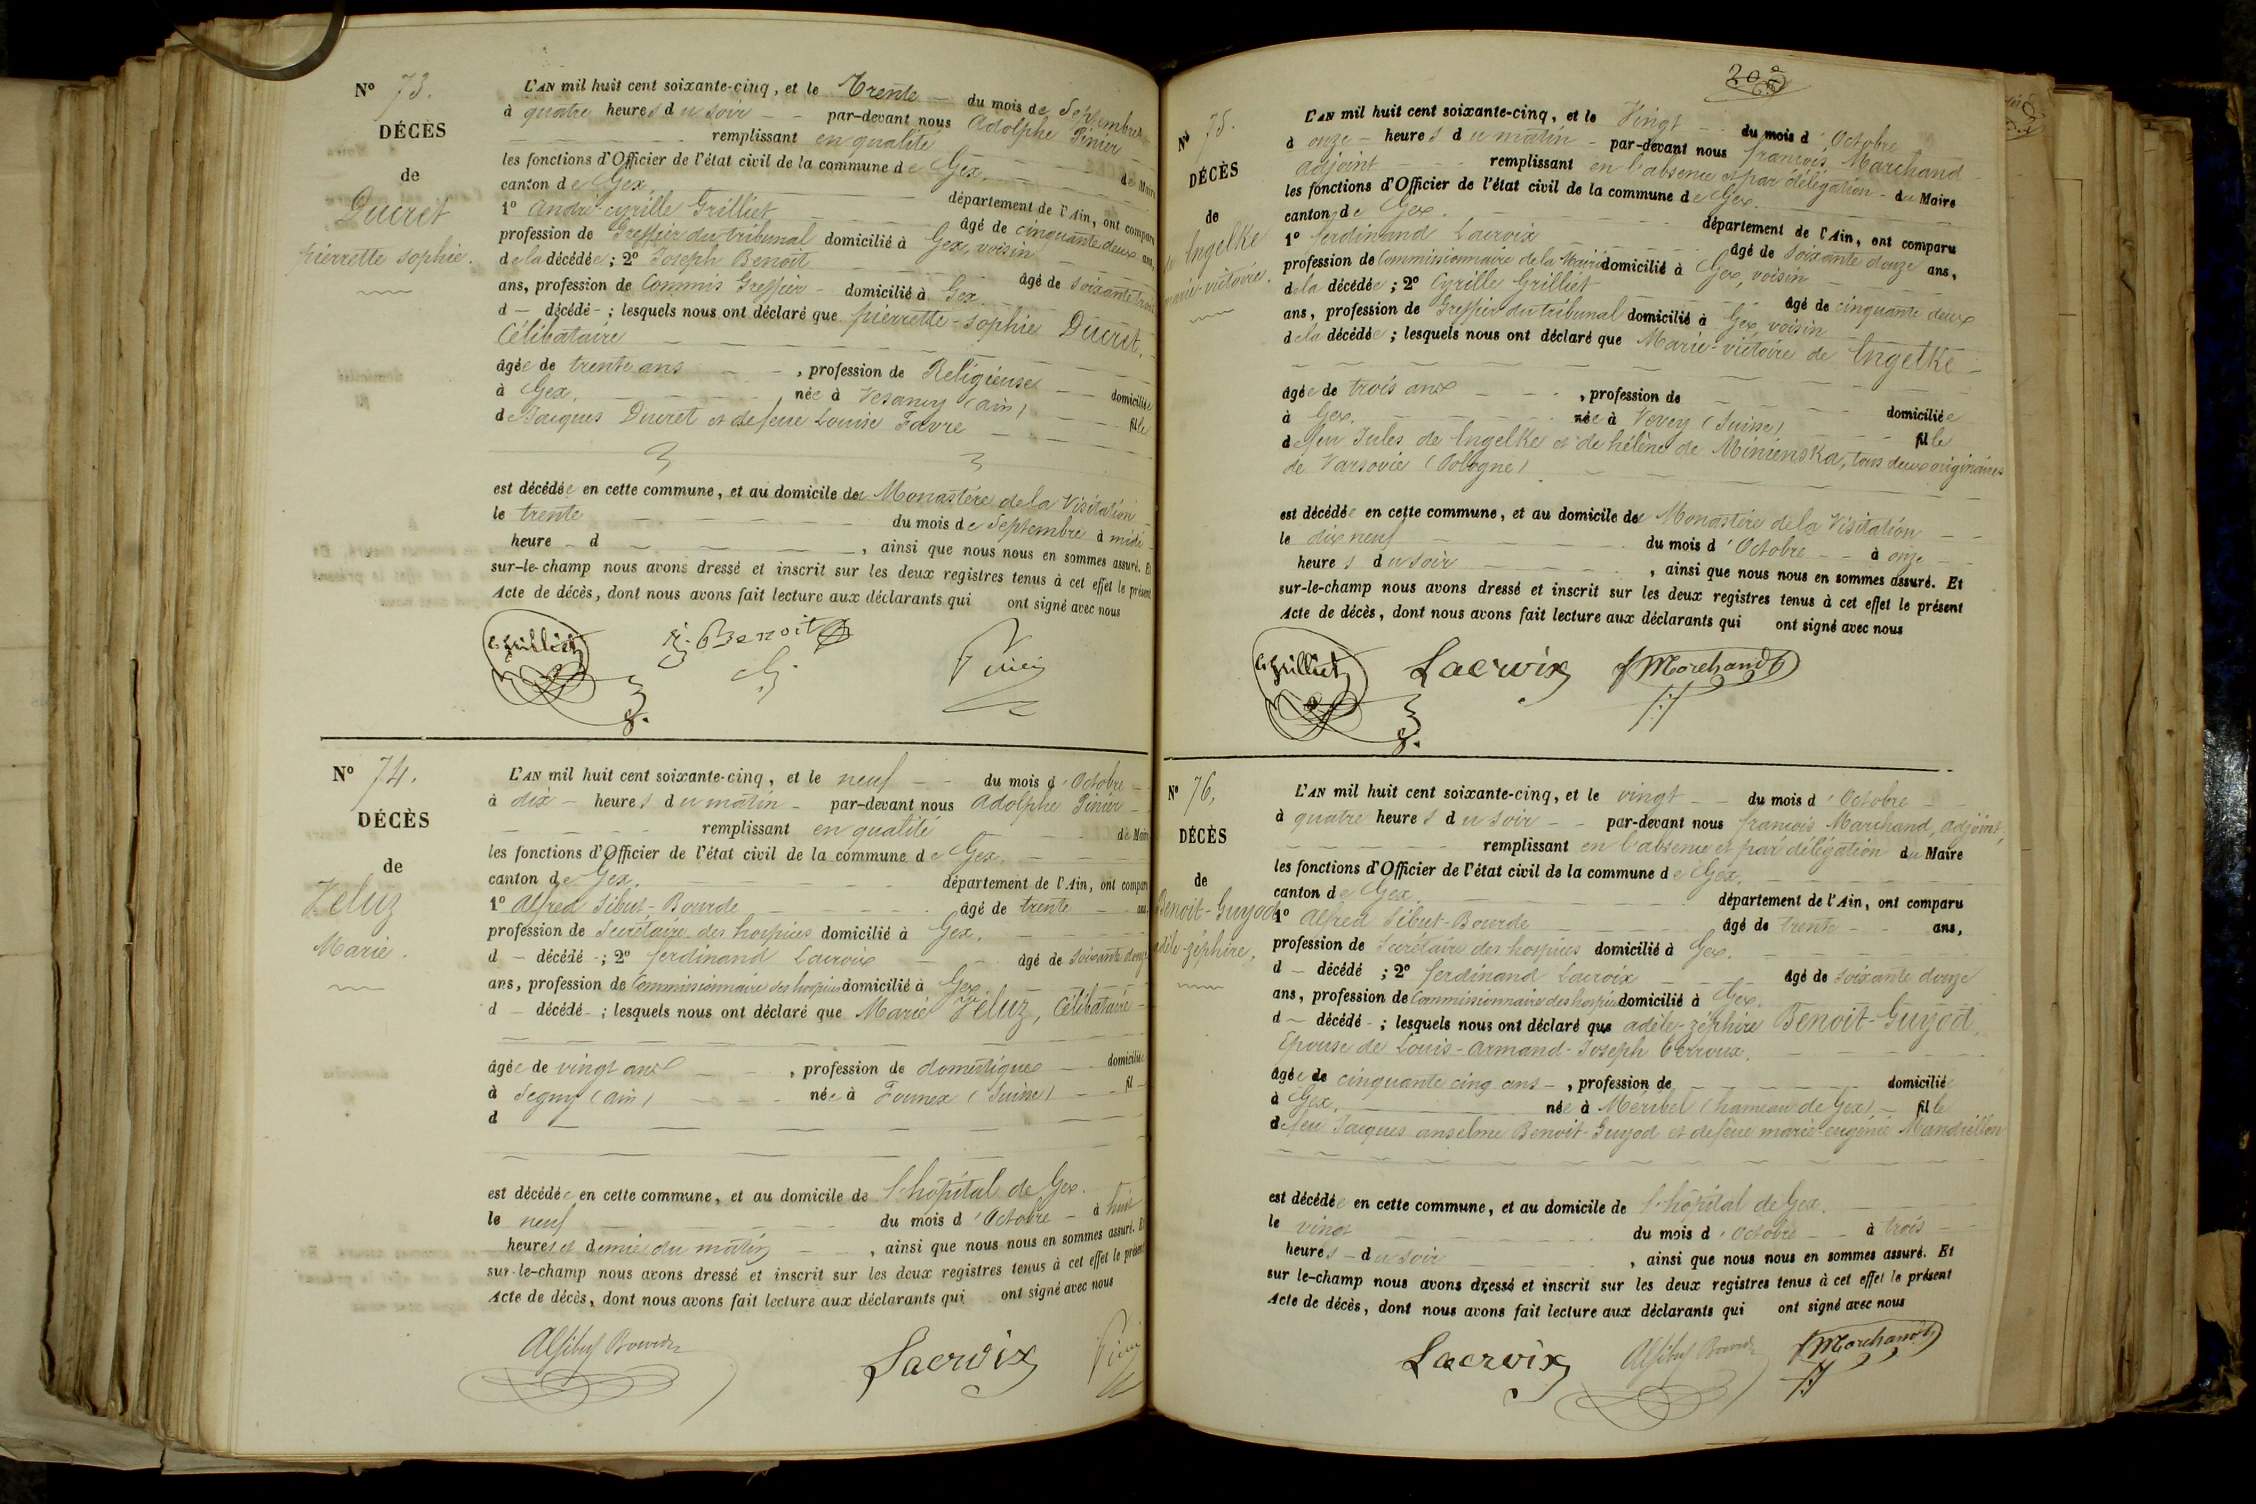 Nº 73.
DÉCÈS
de
Ducret
pierrette sophie.
L'AN mil huit cent soixante-cinq, et le Trente du mois de Septembre
à quatre heures du soir par-devant nous Adolphe Pinier
remplissant en qualité de Maire
les fonctions d'Officier de l'état civil de la commune de Gex.
canton de Gex. département de l'Ain, ont comparu
1º André-cyrille Grilliet âgé de cinquante deux ans,
profession de Greffier du tribunal domicilié à Gex, voisin
de la décédée ; 2º Joseph Benoit âgé de soixante trois
ans, profession de Commis Greffier domicilié à Gex.
d décédé ; lesquels nous ont déclaré que pierrette-sophie Ducret,
Célibataire
âgée de trente ans , profession de Religieuse domiciliée
à Gex, née à Vesancy (ain) fille
de Jacques Ducret et de feue Louise Favre
est décédée en cette commune, et au domicile du Monastère de la Visitation
le trente du mois de Septembre à midi
heure d , ainsi que nous nous en sommes assuré. Et
sur-le-champ nous avons dressé et inscrit sur les deux registres tenus à cet effet le présent
Acte de décès, dont nous avons fait lecture aux déclarants qui ont signé avec nous
C. Grilliet J. Benoit Pinier
Nº 74.
DÉCÈS
de
Veluz
Marie.
L'AN mil huit cent soixante-cinq, et le neuf du mois d'Octobre
à dix heures du matin par-devant nous Adolphe Pinier
remplissant en qualité de Maire
les fonctions d'Officier de l'état civil de la commune de Gex.
canton de Gex. département de l'Ain, ont comparu
1º Alfred Sibut-Bourde âgé de trente ans,
profession de Secrétaire des hospices domicilié à Gex.
d décédé ; 2º ferdinand Lacroix âgé de soixante douze
ans, profession de Commissionnaire des hospices domicilié à Gex.
d décédé ; lesquels nous ont déclaré que Marie Veluz, Célibataire
âgée de vingt ans , profession de domestique domiciliée
à Segny (ain) née à Founex (Suisse) fil
d
est décédée en cette commune, et au domicile de l'hôpital de Gex.
le neuf du mois d'Octobre à huit
heures et demie du matin , ainsi que nous nous en sommes assuré. Et
sur-le-champ nous avons dressé et inscrit sur les deux registres tenus à cet effet le présent
Acte de décès, dont nous avons fait lecture aux déclarants qui ont signé avec nous
A Sibut Bourde Lacroix Pinier
Nº 75.
DÉCÈS
de
de Ingelke
marie-victoire.
L'AN mil huit cent soixante-cinq, et le Vingt du mois d'Octobre
à onze heures du matin par-devant nous françois Marchand
adjoint remplissant en l'absence et par délégation du Maire
les fonctions d'Officier de l'état civil de la commune de Gex.
canton de Gex. département de l'Ain, ont comparu
1º ferdinand Lacroix âgé de soixante douze ans,
profession de Commissionnaire de la Mairie domicilié à Gex, voisin
de la décédée ; 2º Cyrille Grilliet âgé de cinquante deux
ans, profession de Greffier du tribunal domicilié à Gex, voisin
de la décédée ; lesquels nous ont déclaré que Marie-victoire de Ingelke
âgée de trois ans , profession de domiciliée
à Gex. née à Vevey (Suisse) fille
de feu Jules de Ingelke et de hélène de Minienska, tous deux originaires
de Varsovie (Pologne)
est décédée en cette commune, et au domicile du Monastère de la Visitation
le dix neuf du mois d'Octobre à onze
heures du soir , ainsi que nous nous en sommes assuré. Et
sur-le-champ nous avons dressé et inscrit sur les deux registres tenus à cet effet le présent
Acte de décès, dont nous avons fait lecture aux déclarants qui ont signé avec nous
C. Grilliet Lacroix f Marchand
Nº 76,
DÉCÈS
de
Benoit-Guyod
adèle-zéphire.
L'AN mil huit cent soixante-cinq, et le vingt du mois d'Octobre
à quatre heures du soir par-devant nous françois Marchand, adjoint,
remplissant en l'absence et par délégation du Maire
les fonctions d'Officier de l'état civil de la commune de Gex.
canton de Gex. département de l'Ain, ont comparu
1º Alfred Sibut-Bourde âgé de trente ans,
profession de Secrétaire des hospices domicilié à Gex.
d décédé ; 2º ferdinand Lacroix âgé de soixante douze
ans, profession de Commissionnaire des hospices domicilié à Gex.
d décédé ; lesquels nous ont déclaré que adèle-zéphire Benoit-Guyod,
Epouse de Louis-Armand-Joseph Verroux.
âgée de cinquante cinq ans , profession de domiciliée
à Gex. née à Méribel (hameau de Gex) fille
de feu Jacques anselme Benoit-Guyod et de feue marie-eugénie Mandrillon
est décédée en cette commune, et au domicile de l'hôpital de Gex.
le vingt du mois d'Octobre à trois
heures du soir , ainsi que nous nous en sommes assuré. Et
sur le-champ nous avons dressé et inscrit sur les deux registres tenus à cet effet le présent
Acte de décès, dont nous avons fait lecture aux déclarants qui ont signé avec nous
Lacroix A Sibut Bourde f Marchand